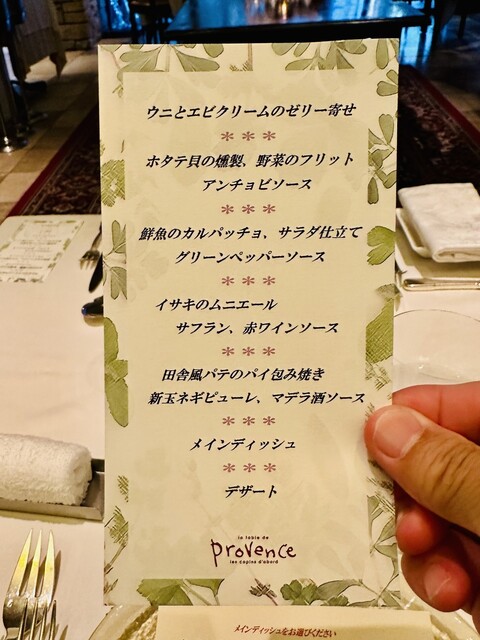 ウニとエビクリームのゼリー寄せ
***
ホタテ貝の燻製、野菜のフリット
アンチョビソース
***
鮮魚のカルパッチョ、サラダ仕立て
グリーンペッパーソース
***
イサキのムニエール
サフラン、赤ワインソース
***
田舎風パテのパイ包み焼き
新玉ネギピューレ、マデラ酒ソース
***
メインディッシュ
***
デザート
la table de
provence
les copins d'abord
メインディッシュをお選びください